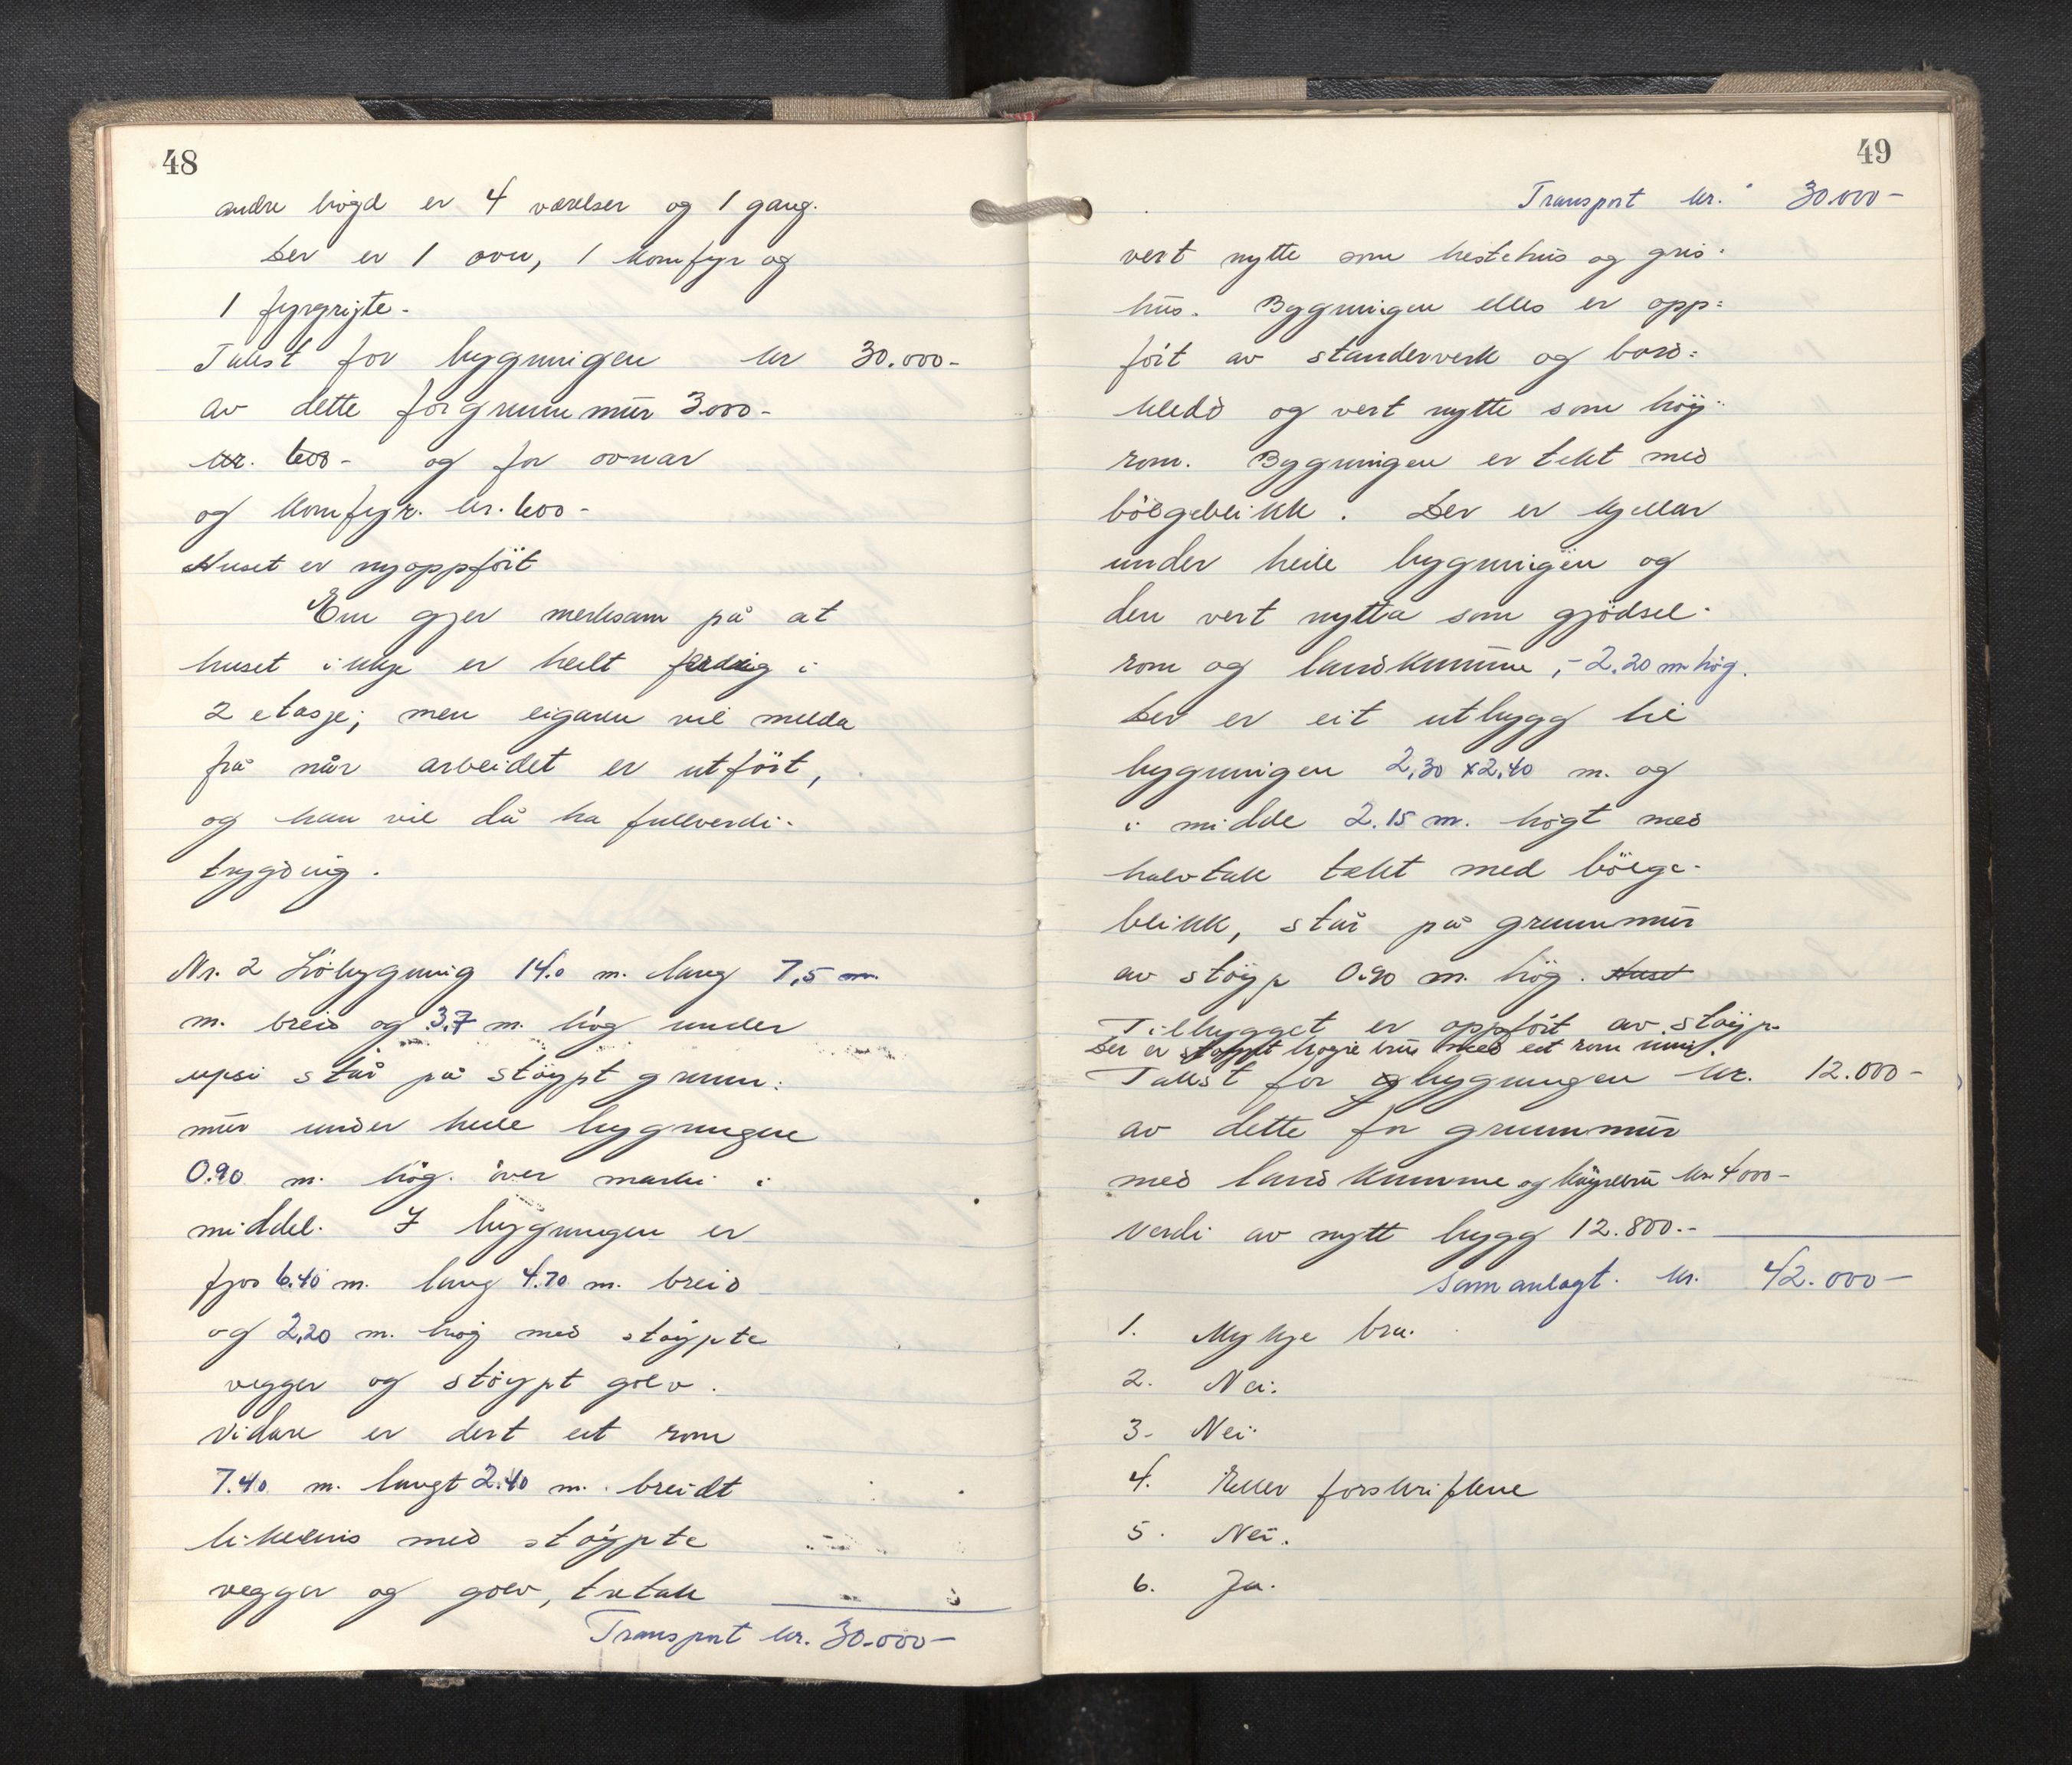 48
andre høgd er 4 værelser og 1 gang.
Der er 1 ovn, 1 komfyr og
1 fyrgryte.
Takst for bygningen kr 30.000-
av dette for grunnmūr 3000-
kr. 600- og for ovnar
og komfyr. kr. 600-
Huset er nyoppföit
Ein gjer merksam på at
huset ikkje er heilt ferdig i
2 etasje; men eigaren vil melda
frå når arbeidet er utfört,
og han vil då ha fullverdi-
trygding.
Nr. 2 Löbygning 14.0 m. lang 7,5 m.
m. breid og 3.7 m. hög under
upsi står på stöypt grunn:
mūr under heile bygningen
0.90 m. hög. över marki i
middel. I bygningen er
fjos 6.40 m. lang 4.70 m. breid
og 2,20 m. hög med stöypte
vegger og stöypt golv.
Vidare er dert eit rom
7.40 m. langt 2.40 m. breidt
likeeins med stöypte
vegger og golv, tretak
Transport kr. 30.000-
49
Transport kr. 30.000-
vert nytte som hestehūs og gris-
hūs. Bygningen elles er opp=
föit av standerverk og bord=
kledd og vert nytte som höy-
rom. Bygningen er tekt med
bölgeblikk. Der er kjellar
under heile bygningen og
den vert nytta som gjödsel-
rom og landkumme, - 2.20 m hög.
Der er eit utbygg til
bygningen 2,30 x 2,40 m. og
i midde 2.15 m. högt med
halvtak tekt med bölge-
blikk, står på grunnmūr
av stöyp 0.90 m. hög. Huset
Tilbygget er oppföit av stöyp.
Der er stöypt högre brū med eit rom inni.
Takst for bygningen kr. 12.000-
av dette for grunnmūr
med landkumme og köyrebrū kr 4000-
Verdi av nytt bygg 12.800.-
Samanlagt. kr. 42.000-
1. Mykje bra.
2. Nei.
3. Nei.
4. Etter forskriftene
5. Nei.
6. Ja.